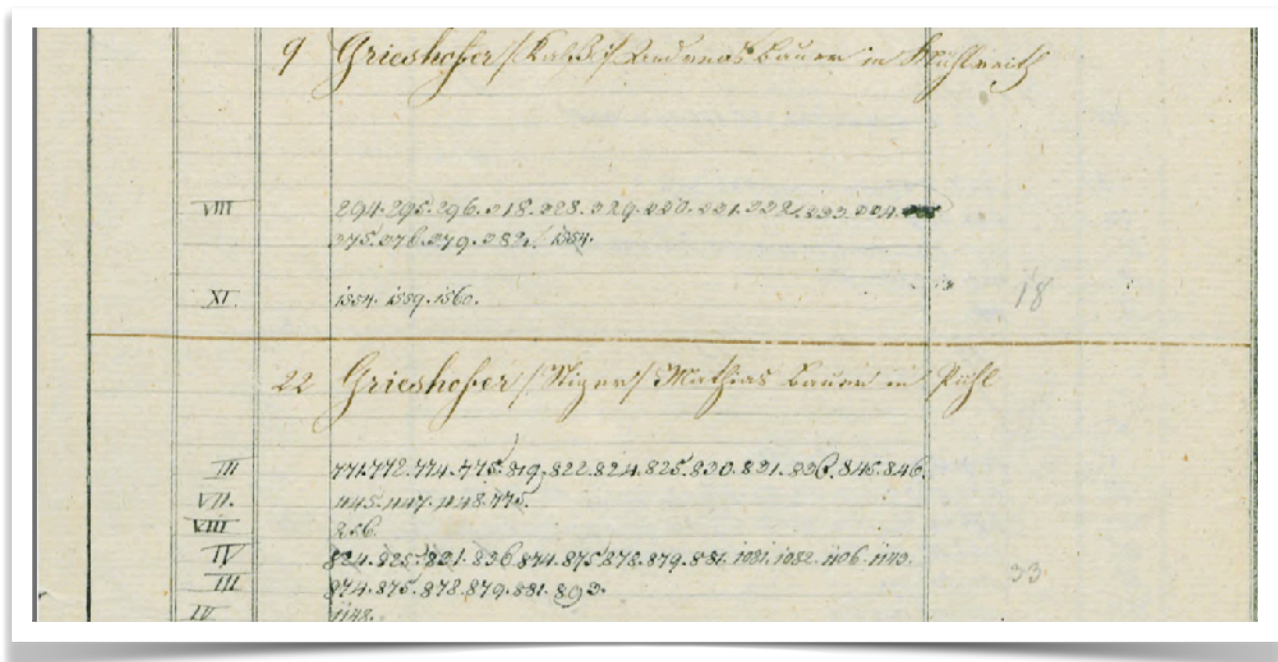 9 Grieshofer / Kalß / Andreas Bauer in Mühlreith
VIII 294. 295. 296. 318. 328. 329. 330. 331. 332. 333. 334.
375. 376. 379. 382. 1554.
XI. 1554. 1559. 1560.
18
22 Grieshofer / Niger / Mathias Bauer in Pichl
III 771. 772. 774. 775. 819. 822. 824. 825. 830. 831. 836. 845. 846.
VII. 1145. 1147. 1148. 775.
VIII 256.
IV 824. 825. 831. 836. 874. 875. 878. 879. 881. 1081. 1082. 1106. 1143.
33
III 874. 875. 878. 879. 881. 893.
IV 1148.